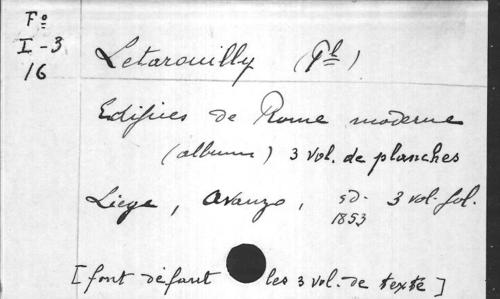 Fº
I-3
16
Letarouilly (Pl)
Edifices de Rome moderne
(albums) 3 vol. de planches
Liege, Avanzo, sd. 3 vol. fol.
1853
[font défaut les 3 vol. de texte]